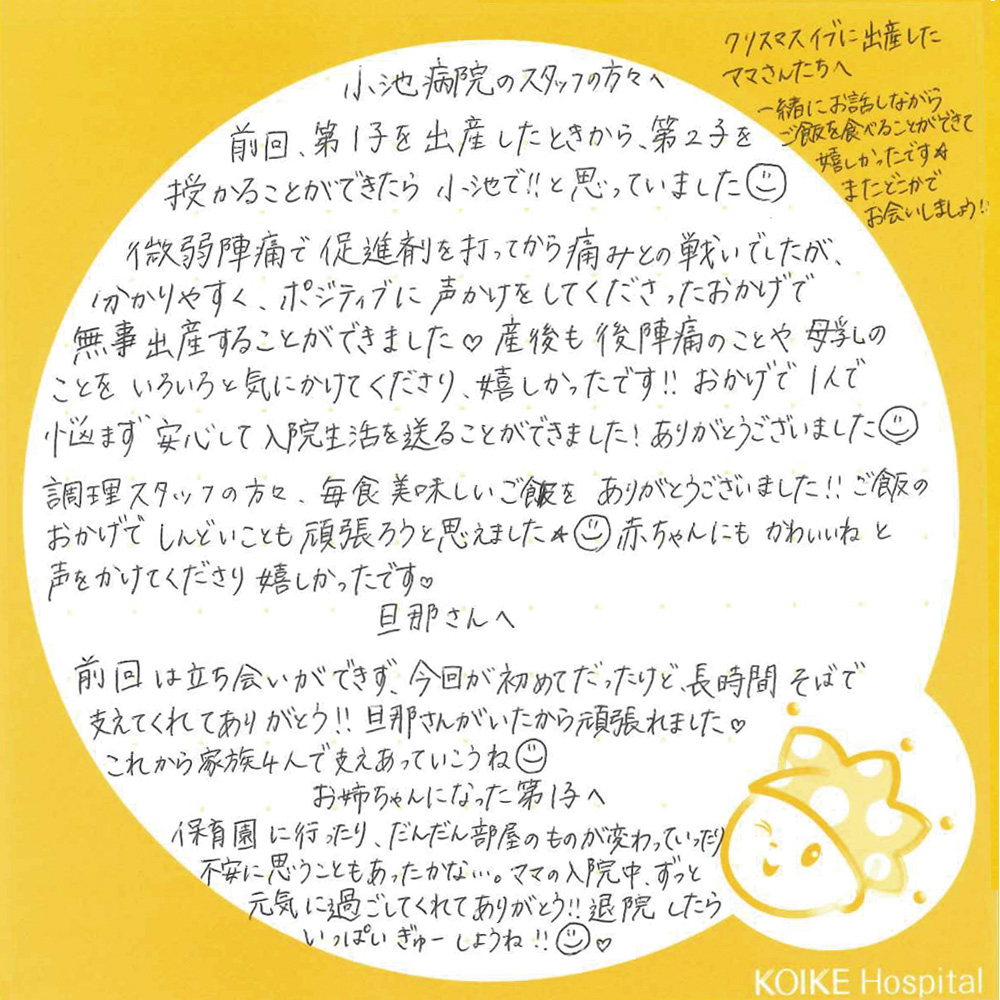 小池病院のスタッフの方々へ
前回、第1子を出産したときから、第2子を
授かることができたら 小池で!!と思っていました☺
微弱陣痛で促進剤を打ってから痛みとの戦いでしたが、
分かりやすく、ポジティブに声かけをしてくださったおかげで
無事出産することができました♡ 産後も後陣痛のことや母乳の
ことをいろいろと気にかけてくださり、嬉しかったです!! おかげで1人で
悩まず安心して入院生活を送ることができました! ありがとうございました☺
調理スタッフの方々、毎食美味しいご飯を ありがとうございました!! ご飯の
おかげで しんどいことも頑張ろうと思えました★☺ 赤ちゃんにも かわいいね と
声をかけてくださり嬉しかったです♡
旦那さんへ
前回は立ち会いができず、今回が初めてだったけど、長時間 そばで
支えてくれてありがとう!! 旦那さんがいたから頑張れました♡
これから家族4人で支えあっていこうね☺
お姉ちゃんになった第1子へ
保育園に行ったり、だんだん部屋のものが変わっていったり
不安に思うこともあったかな…。ママの入院中、ずっと
元気に過ごしてくれてありがとう!! 退院したら
いっぱいぎゅーしようね!!☺♡
クリスマスイブに出産した
ママさんたちへ
一緒にお話しながら
ご飯を食べることができて
嬉しかったです★
またどこかで
お会いしましょう!!
KOIKE Hospital